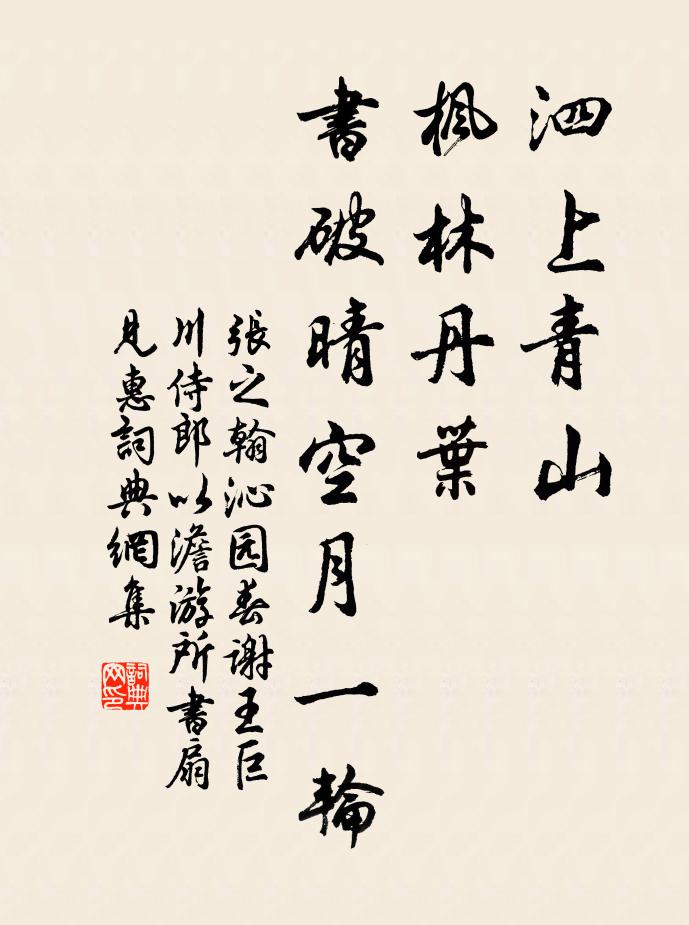 泗上青山
枫林丹葉
書破晴空月一輪
張之翰沁园春谢王巨
川侍郎以澹游所書扇
見惠詞典網集
詞典
网印